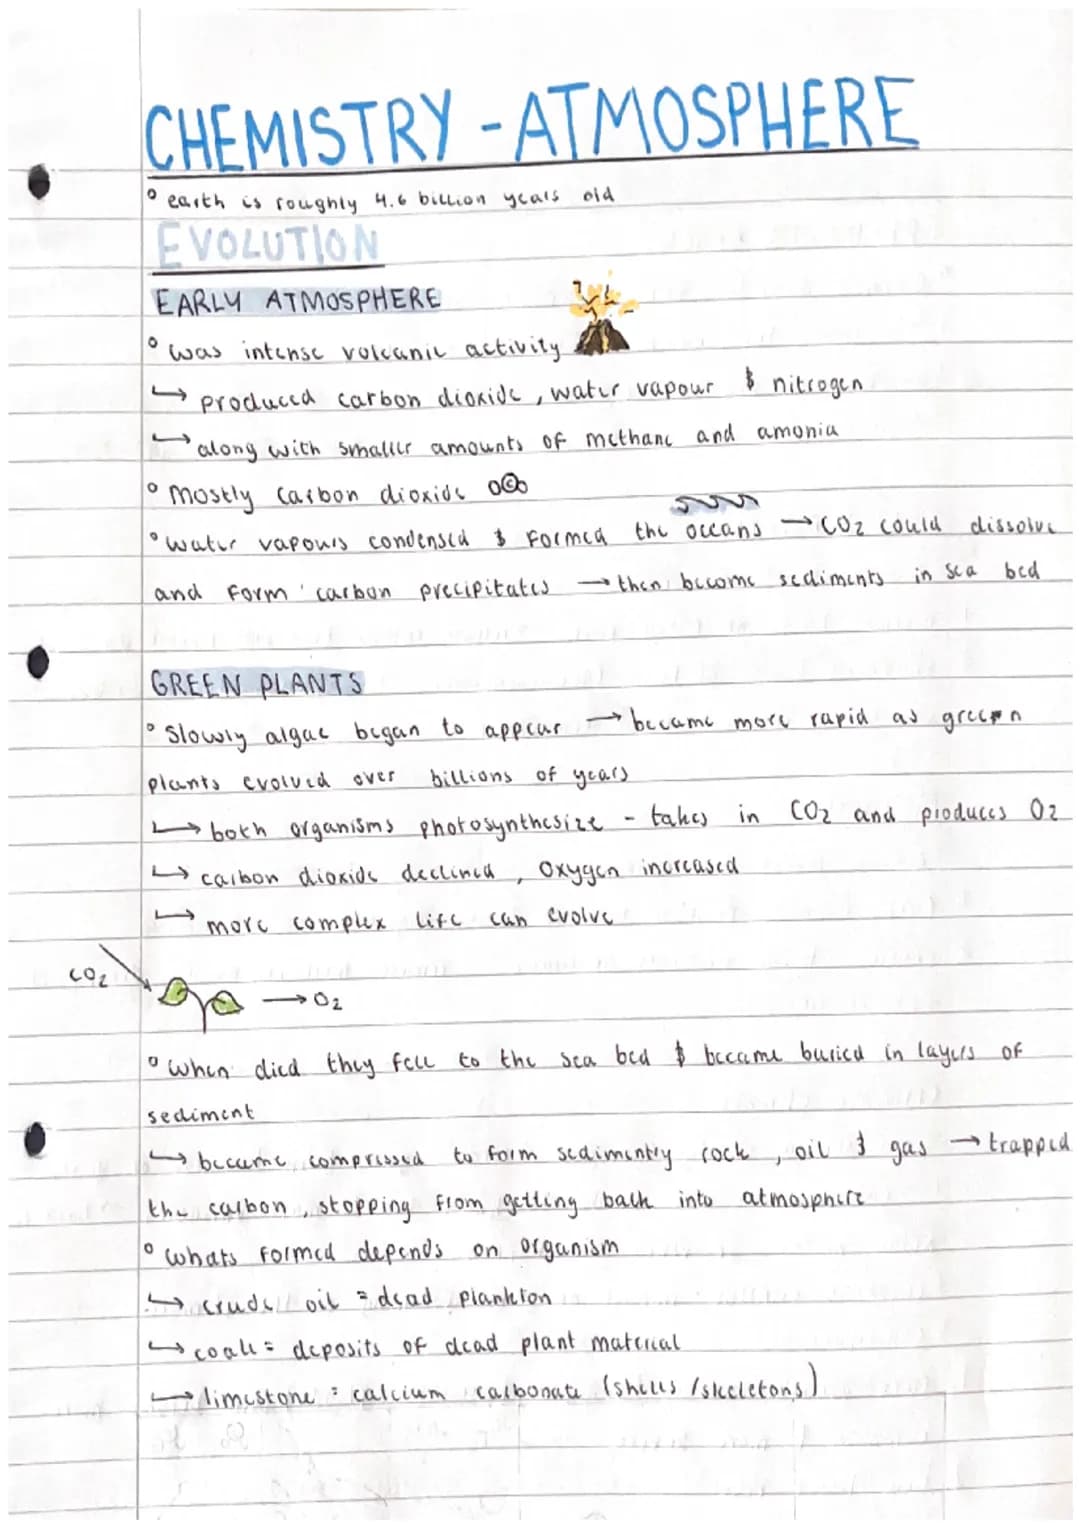 CHEMISTRY - ATMOSPHERE
° earth is roughly 4.6 billion years old
EVOLUTION
EARLY ATMOSPHERE
° was intense volcanic activity
↳ produced carbon dioxide, water vapour & nitrogen
↳ along with smaller amounts of methane and amonia
° mostly carbon dioxide OCO
° water vapours condensed & formed the oceans → CO₂ could dissolve
and form carbon precipitates → then become sediments in sea bed
GREEN PLANTS
° Slowly algae began to appear → became more rapid as green
plants evolved over billions of years
↳ both organisms photosynthesize - takes in CO₂ and produces O₂
↳ carbon dioxide declined, oxygen increased
↳ more complex life can evolve
CO₂
→ O₂
° when died they fell to the sea bed & became buried in layers of
sediment
↳ became compressed to form sedimenty rock, oil & gas → trapped
the carbon, stopping from getting back into atmosphere
° whats formed depends on organism
↳ crude oil = dead plankton
↳ coal = deposits of dead plant material
↳ limestone = calcium carbonate (shells / skeletons)